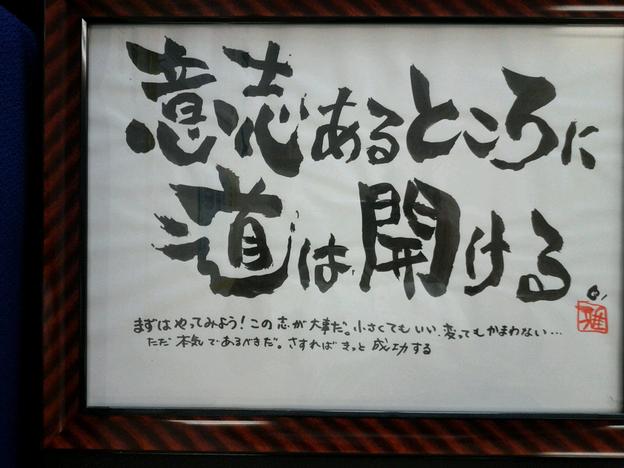 意志あるところに
道は開ける。
まずはやってみよう!この志が大事だ。小さくてもいい、変ってもかまわない…
ただ本気であるべきだ。さすればきっと成功する